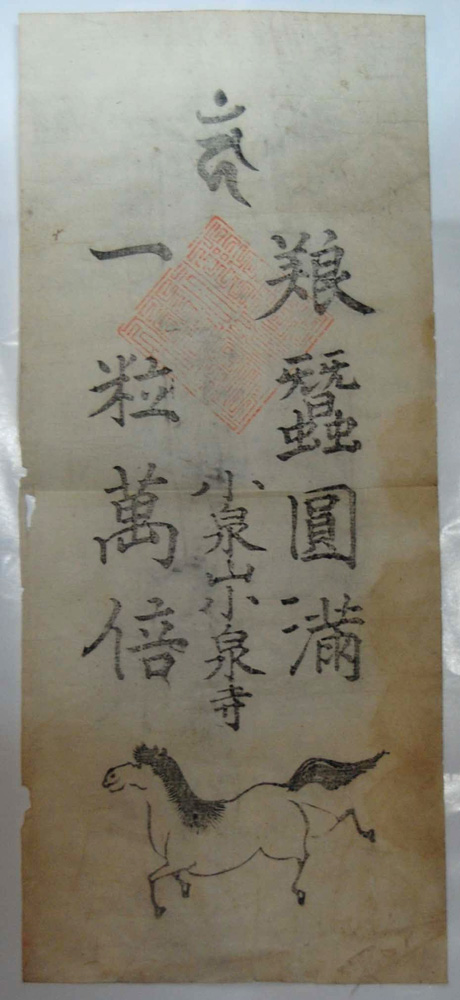 蠶圓滿
小泉山小泉寺
一粒萬倍